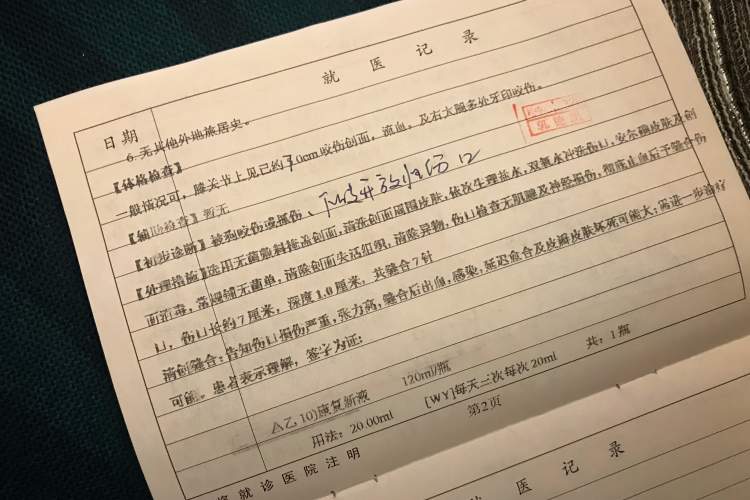 就医记录
日期
6.无其他外地旅居史。
【体格检查】
一般情况可，膝关节上见已约7.0cm咬伤创面，流血，及右大腿多处牙印咬伤。
【辅助检查】暂无
【初步诊断】被狗咬伤或抓伤、开放性伤口
【处理措施】选用无菌敷料掩盖创面，清洗创面周围皮肤，依次生理盐水，双氧水冲洗伤口，安尔碘皮肤及创
面消毒，常规铺无菌单，清除创面失活组织，清除异物，伤口检查无肌腱及神经损伤，彻底止血后予缝合伤
口，伤口长约7厘米，深度1.0厘米，共缝合7针
清创缝合：告知伤口损伤严重，张力高，缝合后出血，感染，延迟愈合及皮瓣皮肤坏死可能大；需进一步治疗
可能。患者表示理解，签字为证：
A乙.10)康复新液 120ml/瓶
用法：20.00ml [WY]每天三次每次20ml 共：1瓶
第2页
将就诊医院注明
就医记录